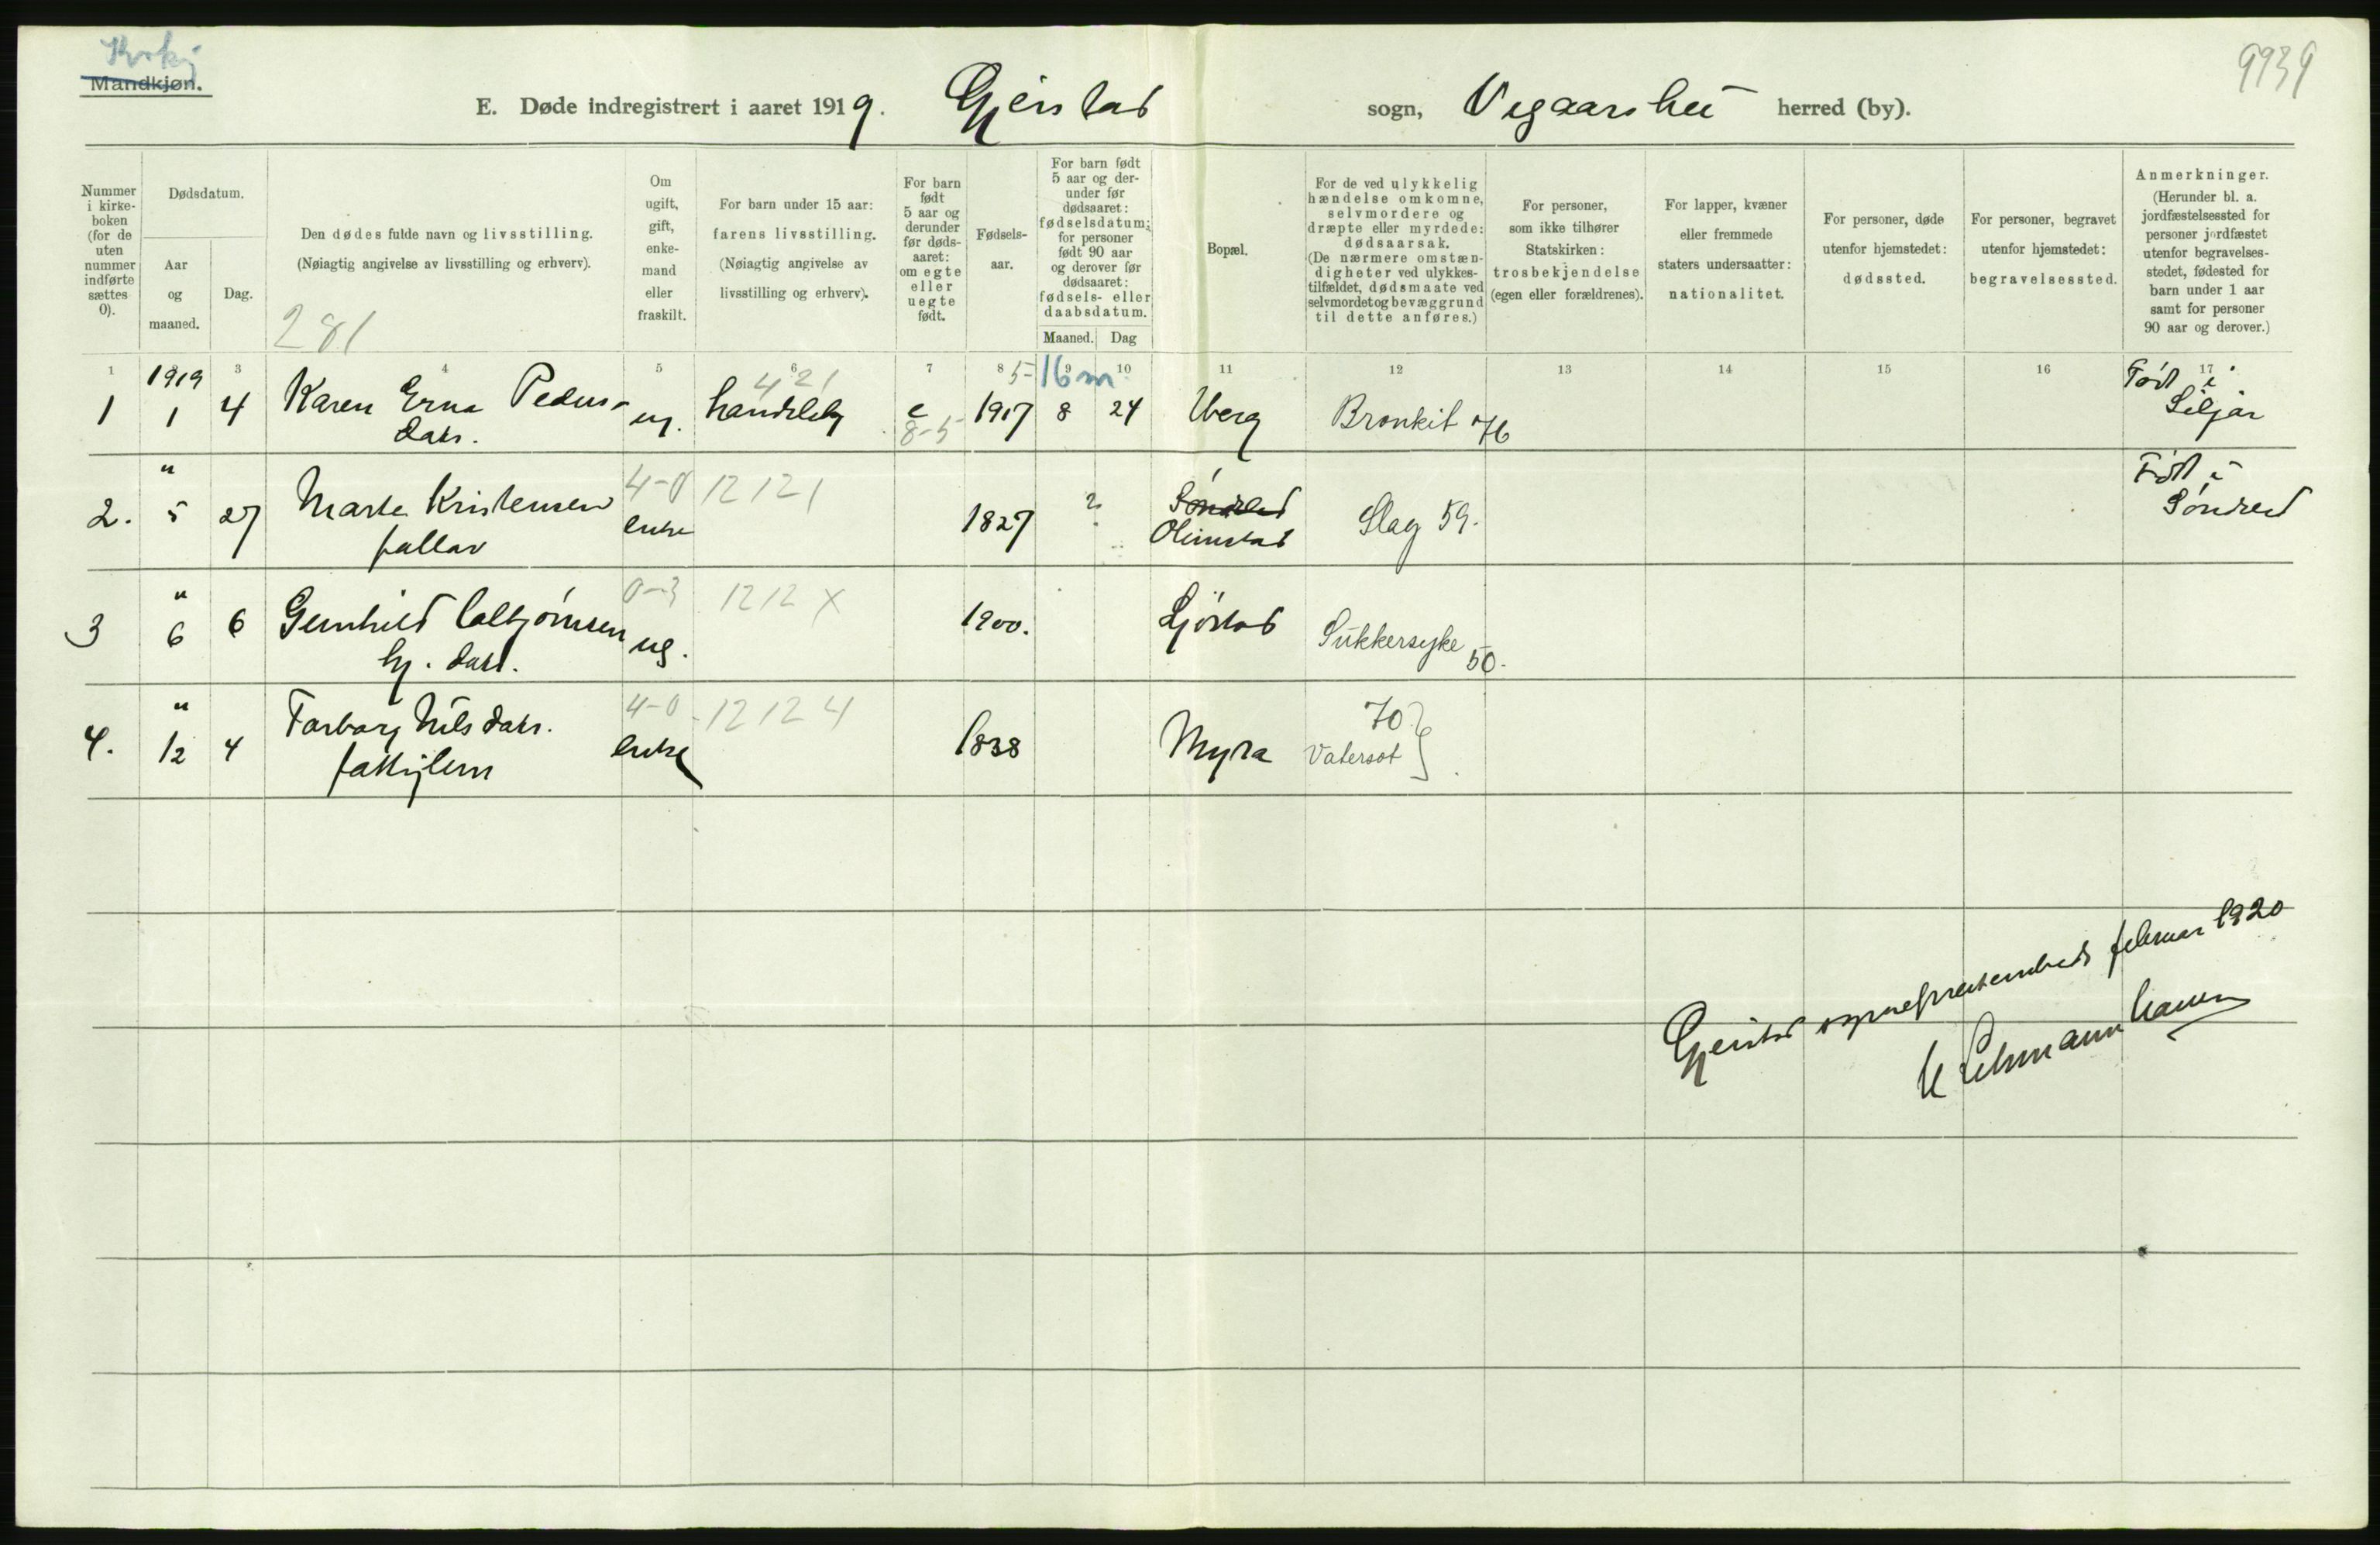 Kvkj
Mandkjøn.
9939
E. Døde indregistrert i aaret 1919. Gjerstad sogn, Vegaarshei herred (by).
Nummer i kirkeboken (for de uten nummer indførte sættes 0).
Dødsdatum.
Aar og maaned.
Dag.
Den dødes fulde navn og livsstilling.
(Nøiagtig angivelse av livsstilling og erhverv).
281
Om ugift, gift, enkemand eller fraskilt.
For barn under 15 aar: farens livsstilling.
(Nøiagtig angivelse av livsstilling og erhverv).
For barn født 5 aar og derunder før dødsaaret: om egte eller uegte født.
Fødselsaar.
For barn født 5 aar og derunder før dødsaaret: fødselsdatum; for personer født 90 aar og derover før dødsaaret: fødsels- eller daabsdatum.
Maaned. Dag
Bopæl.
For de ved ulykkelig hændelse omkomne, selvmordere og dræpte eller myrdede: dødsaarsak.
(De nærmere omstændigheter ved ulykkestilfældet, dødsmaate ved selvmordet og bevæggrund til dette anføres.)
For personer, som ikke tilhører Statskirken: trosbekjendelse (egen eller forældrenes).
For lapper, kvæner eller fremmede staters undersaatter: nationalitet.
For personer, døde utenfor hjemstedet: dødssted.
For personer, begravet utenfor hjemstedet: begravelsessted.
Anmerkninger.
(Herunder bl. a. jordfæstelsessted for personer jordfæstet utenfor begravelsesstedet, fødested for barn under 1 aar samt for personer 90 aar og derover.)
1 3 4 5 6 7 8 9 10 11 12 13 14 15 16 17
1919 421 5- 16 m Født i
1 1 4 Karen Erna Peders- ug. 1917 8 24 Uberg Bronkit 76 Siljar
datr. e 8-5
" 4-0 12 12 1 Født i
2. 5 27 Marte Kristensen enke 1827 ? Søndeled Slag 59. Søndeled
Olimstad
" 0-3 12 12 X
3 6 6 Gunhild ug. 1900. Ljøstad Sukkersyke 50.
datr.
" 4-0 12 12 4 70?
4. 12 4 Torborg Nilsdatr. enke 1838 Myra Vatersot
Gjerstad sogneprestembede februar 1920